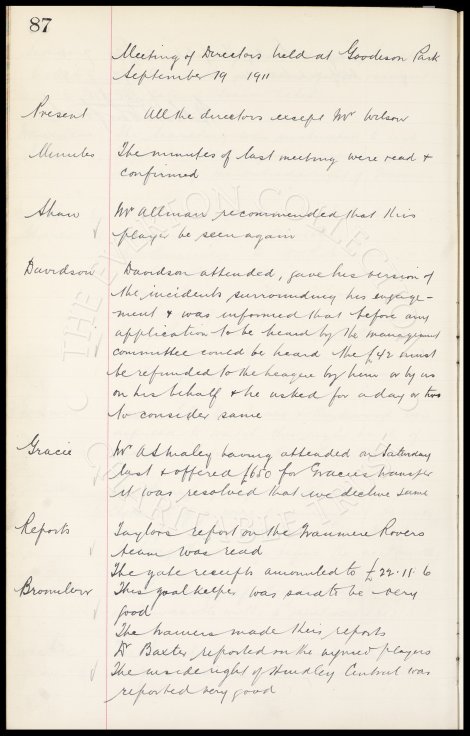 87
Meeting of Directors held at Goodison Park
September 19 1911
Present All the directors except Mr Wilson
Minutes The minutes of last meeting were read &
confirmed
Shaw Mr Allman recommended that this
player be seen again
Davidson Davidson attended, gave his version of
the incidents surrounding his engage-
ment & was informed that before any
application to be heard by the management
committee could be heard the £42 must
be refunded to the league by him or by us
on his behalf & he asked for a day or two
to consider same
Gracie Mr Ashworthy having attended on Saturday
last & offered £650 for Gracies transfer
it was resolved that we decline same
Reports Taylors report on the Tranmere Rovers
team was read
The gate receipts amounted to £22-11-6
Bromilow This goalkeeper was said to be very
good
The trainers made their reports
Dr Baxter reported on the injured players
The inside right of Hindley Central was
reported very good
THE EVERTON COLLECTION
CHARITABLE TRUST